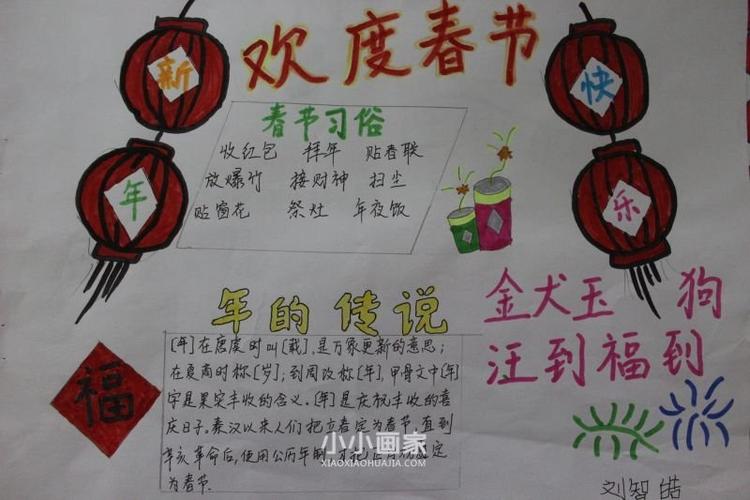 欢度春节
新年
快乐
春节习俗
收红包 拜年 贴春联
放爆竹 接财神 扫尘
贴窗花 祭灶 年夜饭
年的传说
[年]在唐虞时叫[载],是万象更新的意思;
在夏商时称[岁];到周改称[年],甲骨文中[年]
字是果实丰收的含义.[年]是庆祝丰收的喜
庆日子.秦汉以来人们把立春定为春节.直到
辛亥革命后,使用公历年制,才把正月初一定
为春节.
金犬玉 狗
汪到福到
福
刘智皓
小小画家
XIAOXIAOHUAJIA.COM